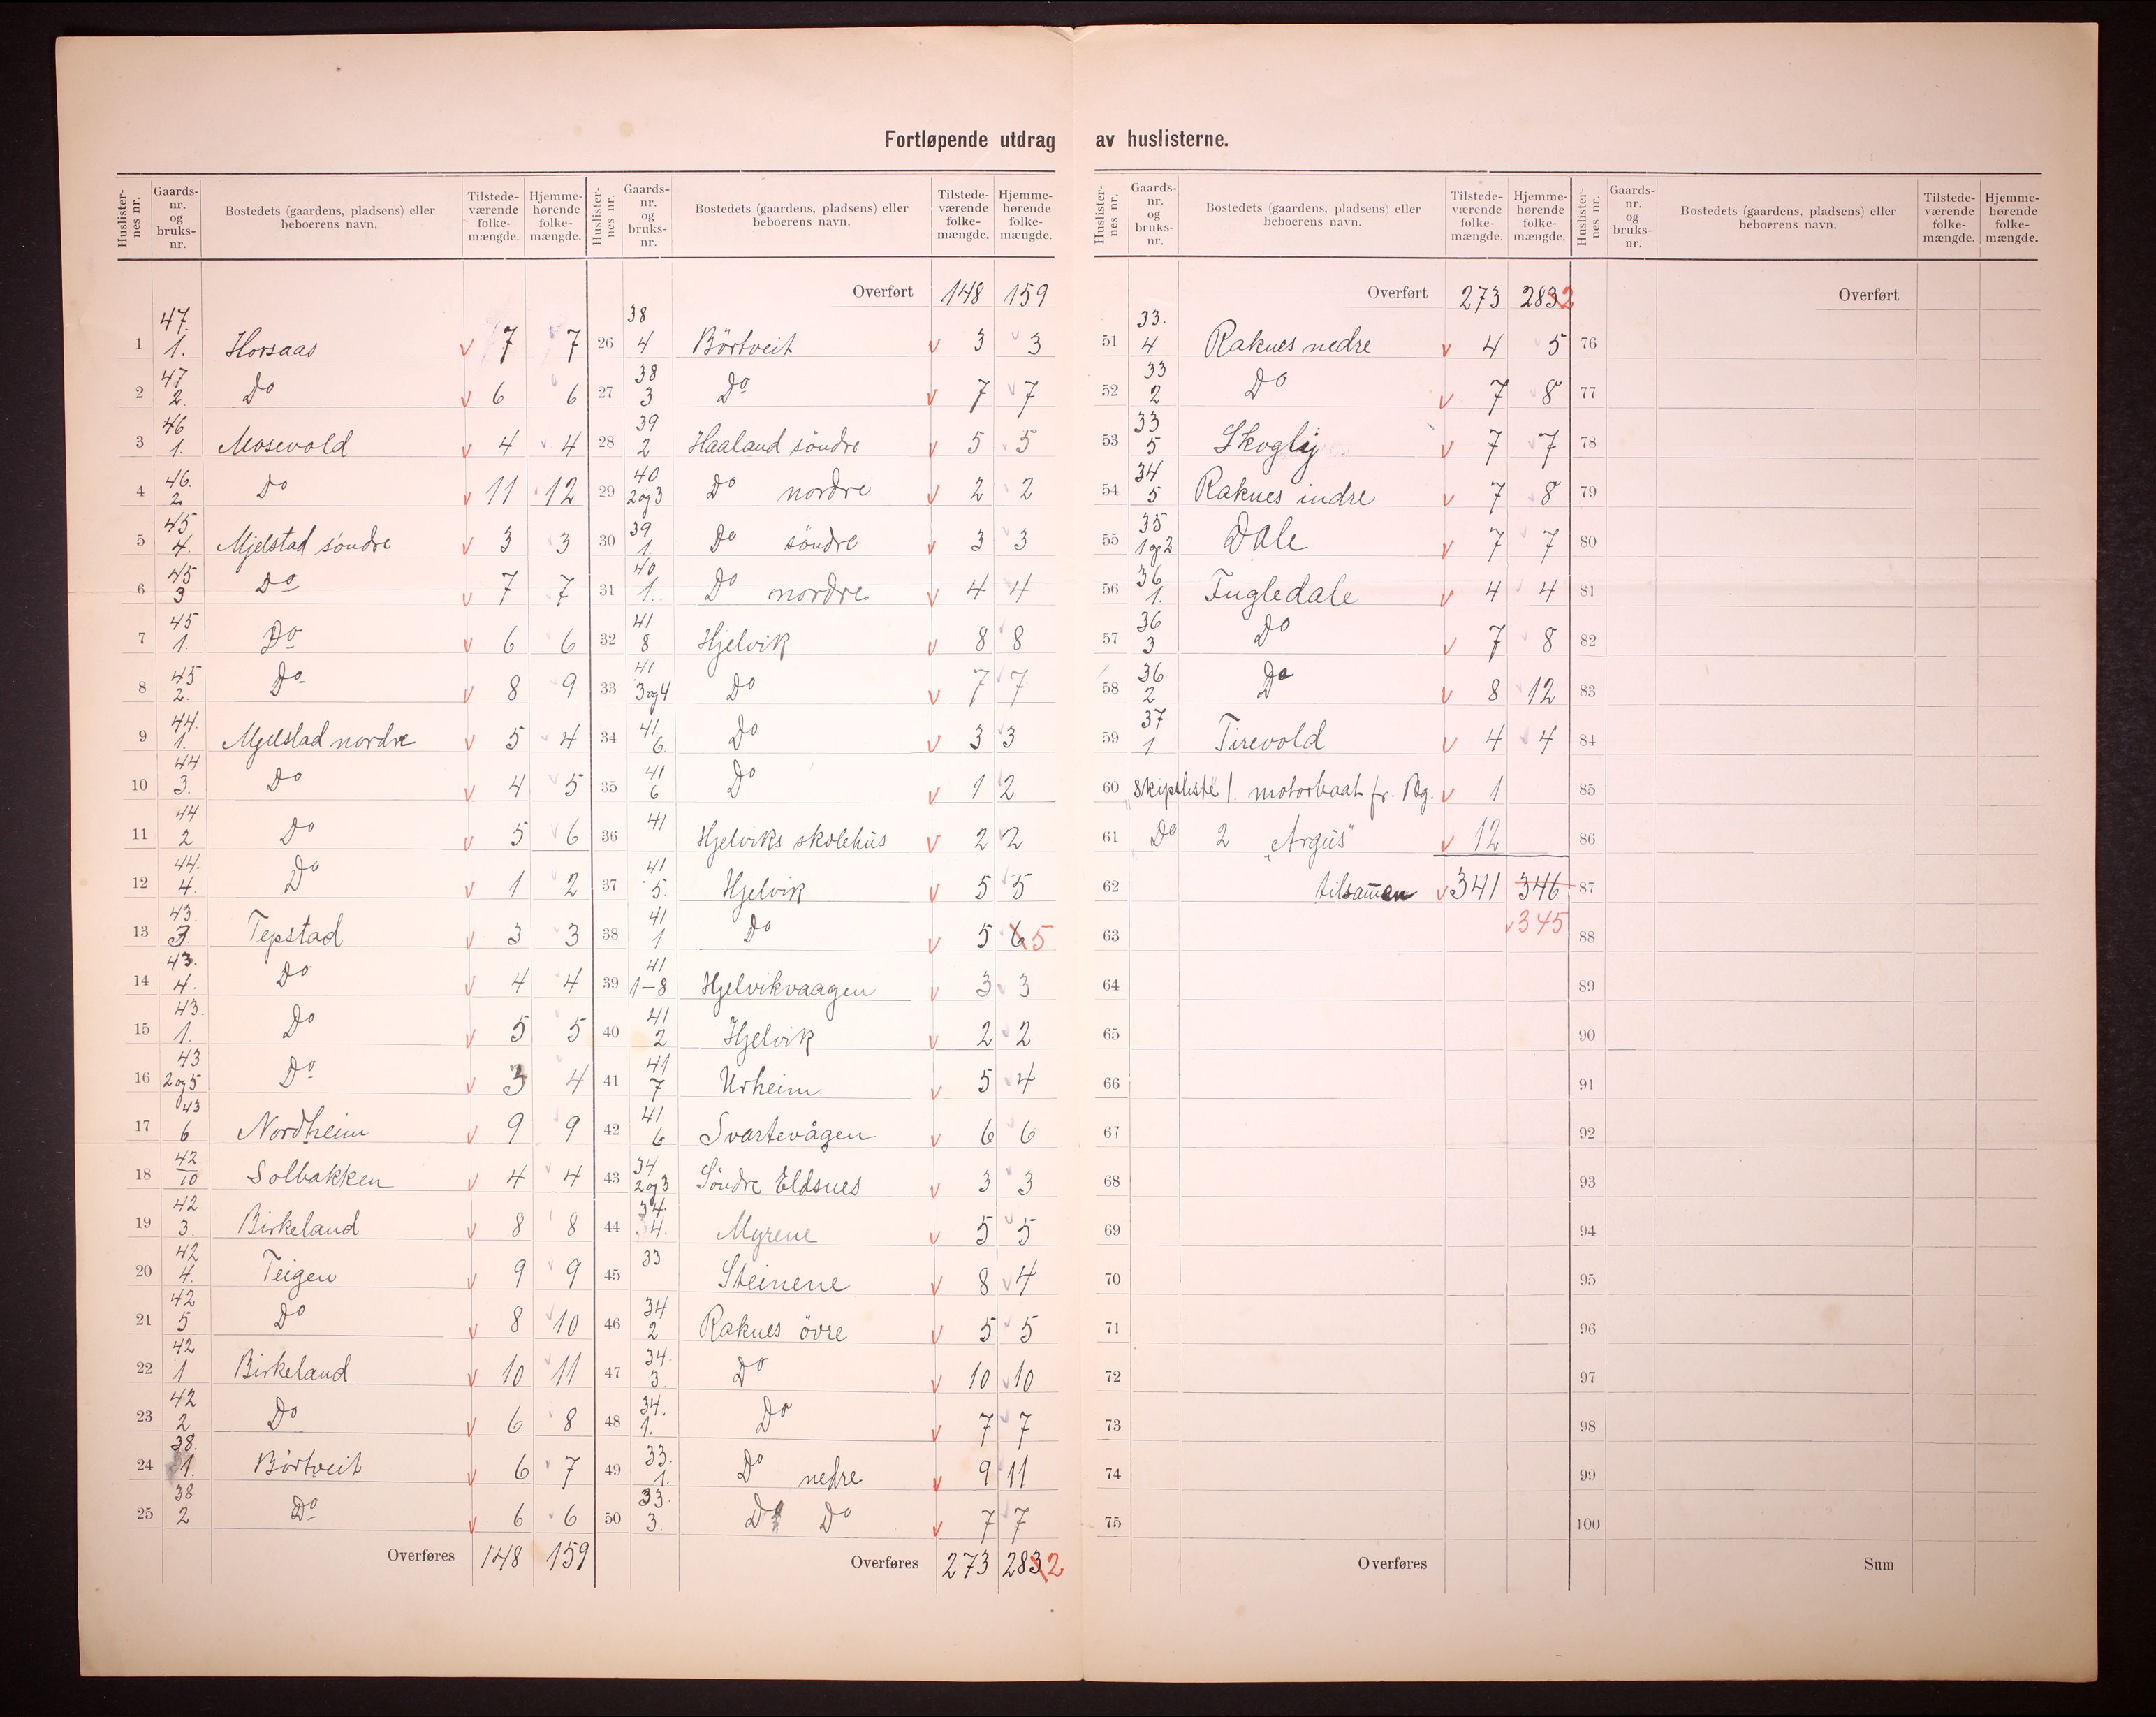 Fortløpende utdrag av huslisterne.
Huslisternes nr. Gaards-nr. og bruks-nr. Bostedets (gaardens, pladsens) eller beboerens navn. Tilstede-værende folke-mængde. Hjemme-hørende folke-mængde.
1 47. 1. Horsaas v 7 7
2 47 2. Do v 6 6
3 46 1. Mosevold v 4 4
4 46. 2. Do v 11 12
5 45 4. Mjelstad søndre v 3 3
6 45 3 Do v 7 7
7 45 1. Do v 6 6
8 45 2. Do v 8 9
9 44. 1. Mjelstad nordre v 5 4
10 44 3. Do v 4 5
11 44 2 Do v 5 6
12 44. 4. Do v 1 2
13 43. 3. Tepstad v 3 3
14 43. 4. Do v 4 4
15 43. 1. Do v 5 5
16 43 2 og 5 Do v 3 4
17 43 6 Nordheim v 9 9
18 42 10 Solbakken v 4 4
19 42 3. Birkeland v 8 8
20 42 4. Teigen v 9 9
21 42 5 Do v 8 10
22 42 1 Birkeland v 10 11
23 42 2 Do v 6 8
24 38. 1. Börtveit v 6 7
25 38 2 Do v 6 6
Overføres 148 159
Huslisternes nr. Gaards-nr. og bruks-nr. Bostedets (gaardens, pladsens) eller beboerens navn. Tilstede-værende folke-mængde. Hjemme-hørende folke-mængde.
Overført 148 159
26 38 4 Börtveit v 3 3
27 38 3 Do v 7 7
28 39 2 Haaland söndre v 5 5
29 40 2 og 3 Do nordre v 2 2
30 39 1. Do söndre v 3 3
31 40 1. Do nordre v 4 4
32 41 8 Hjelvik v 8 8
33 41 3 og 4 Do v 7 7
34 41. 6. Do v 3 3
35 41 6 Do v 1 2
36 41 Hjelviks skolehus v 2 2
37 41 5. Hjelvik v 5 5
38 41 1 Do v 5 6 5
39 41 1-8 Hjelvikvaagen v 3 3
40 41 2 Hjelvik v 2 2
41 41 7 Urheim v 5 4
42 41 6 Svartevågen v 6 6
43 34 2 og 3 Söndre Eldsnes v 3 3
44 34. 4. Myrene v 5 5
45 33 Steinene v 8 4
46 34 2 Raknes övre v 5 5
47 34. 3 Do v 10 10
48 34. 1. Do v 7 7
49 33. 1. Do nedre v 9 11
50 33. 3. Do Do v 7 7
Overføres 273 283 2
Huslisternes nr. Gaards-nr. og bruks-nr. Bostedets (gaardens, pladsens) eller beboerens navn. Tilstede-værende folke-mængde. Hjemme-hørende folke-mængde.
Overført 273 283 2
51 33. 4 Raknes nedre v 4 5
52 33 2 Do v 7 8
53 33 5 Skogly v 7 7
54 34 5 Raknes indre v 7 8
55 35 1 og 2 Dale v 7 7
56 36 1. Fugledale v 4 4
57 36 3 Do v 7 8
58 36 2 Do v 8 12
59 37 1 Tirevold v 4 4
60 Skipsliste 1. motorbaat fr. Bg. v 1
61 Do 2 "Argus" v 12
62 tilsammen v 341 346
63 v 345
64
65
66
67
68
69
70
71
72
73
74
75
Overføres
Huslisternes nr. Gaards-nr. og bruks-nr. Bostedets (gaardens, pladsens) eller beboerens navn. Tilstede-værende folke-mængde. Hjemme-hørende folke-mængde.
Overført
76
77
78
79
80
81
82
83
84
85
86
87
88
89
90
91
92
93
94
95
96
97
98
99
100
Sum